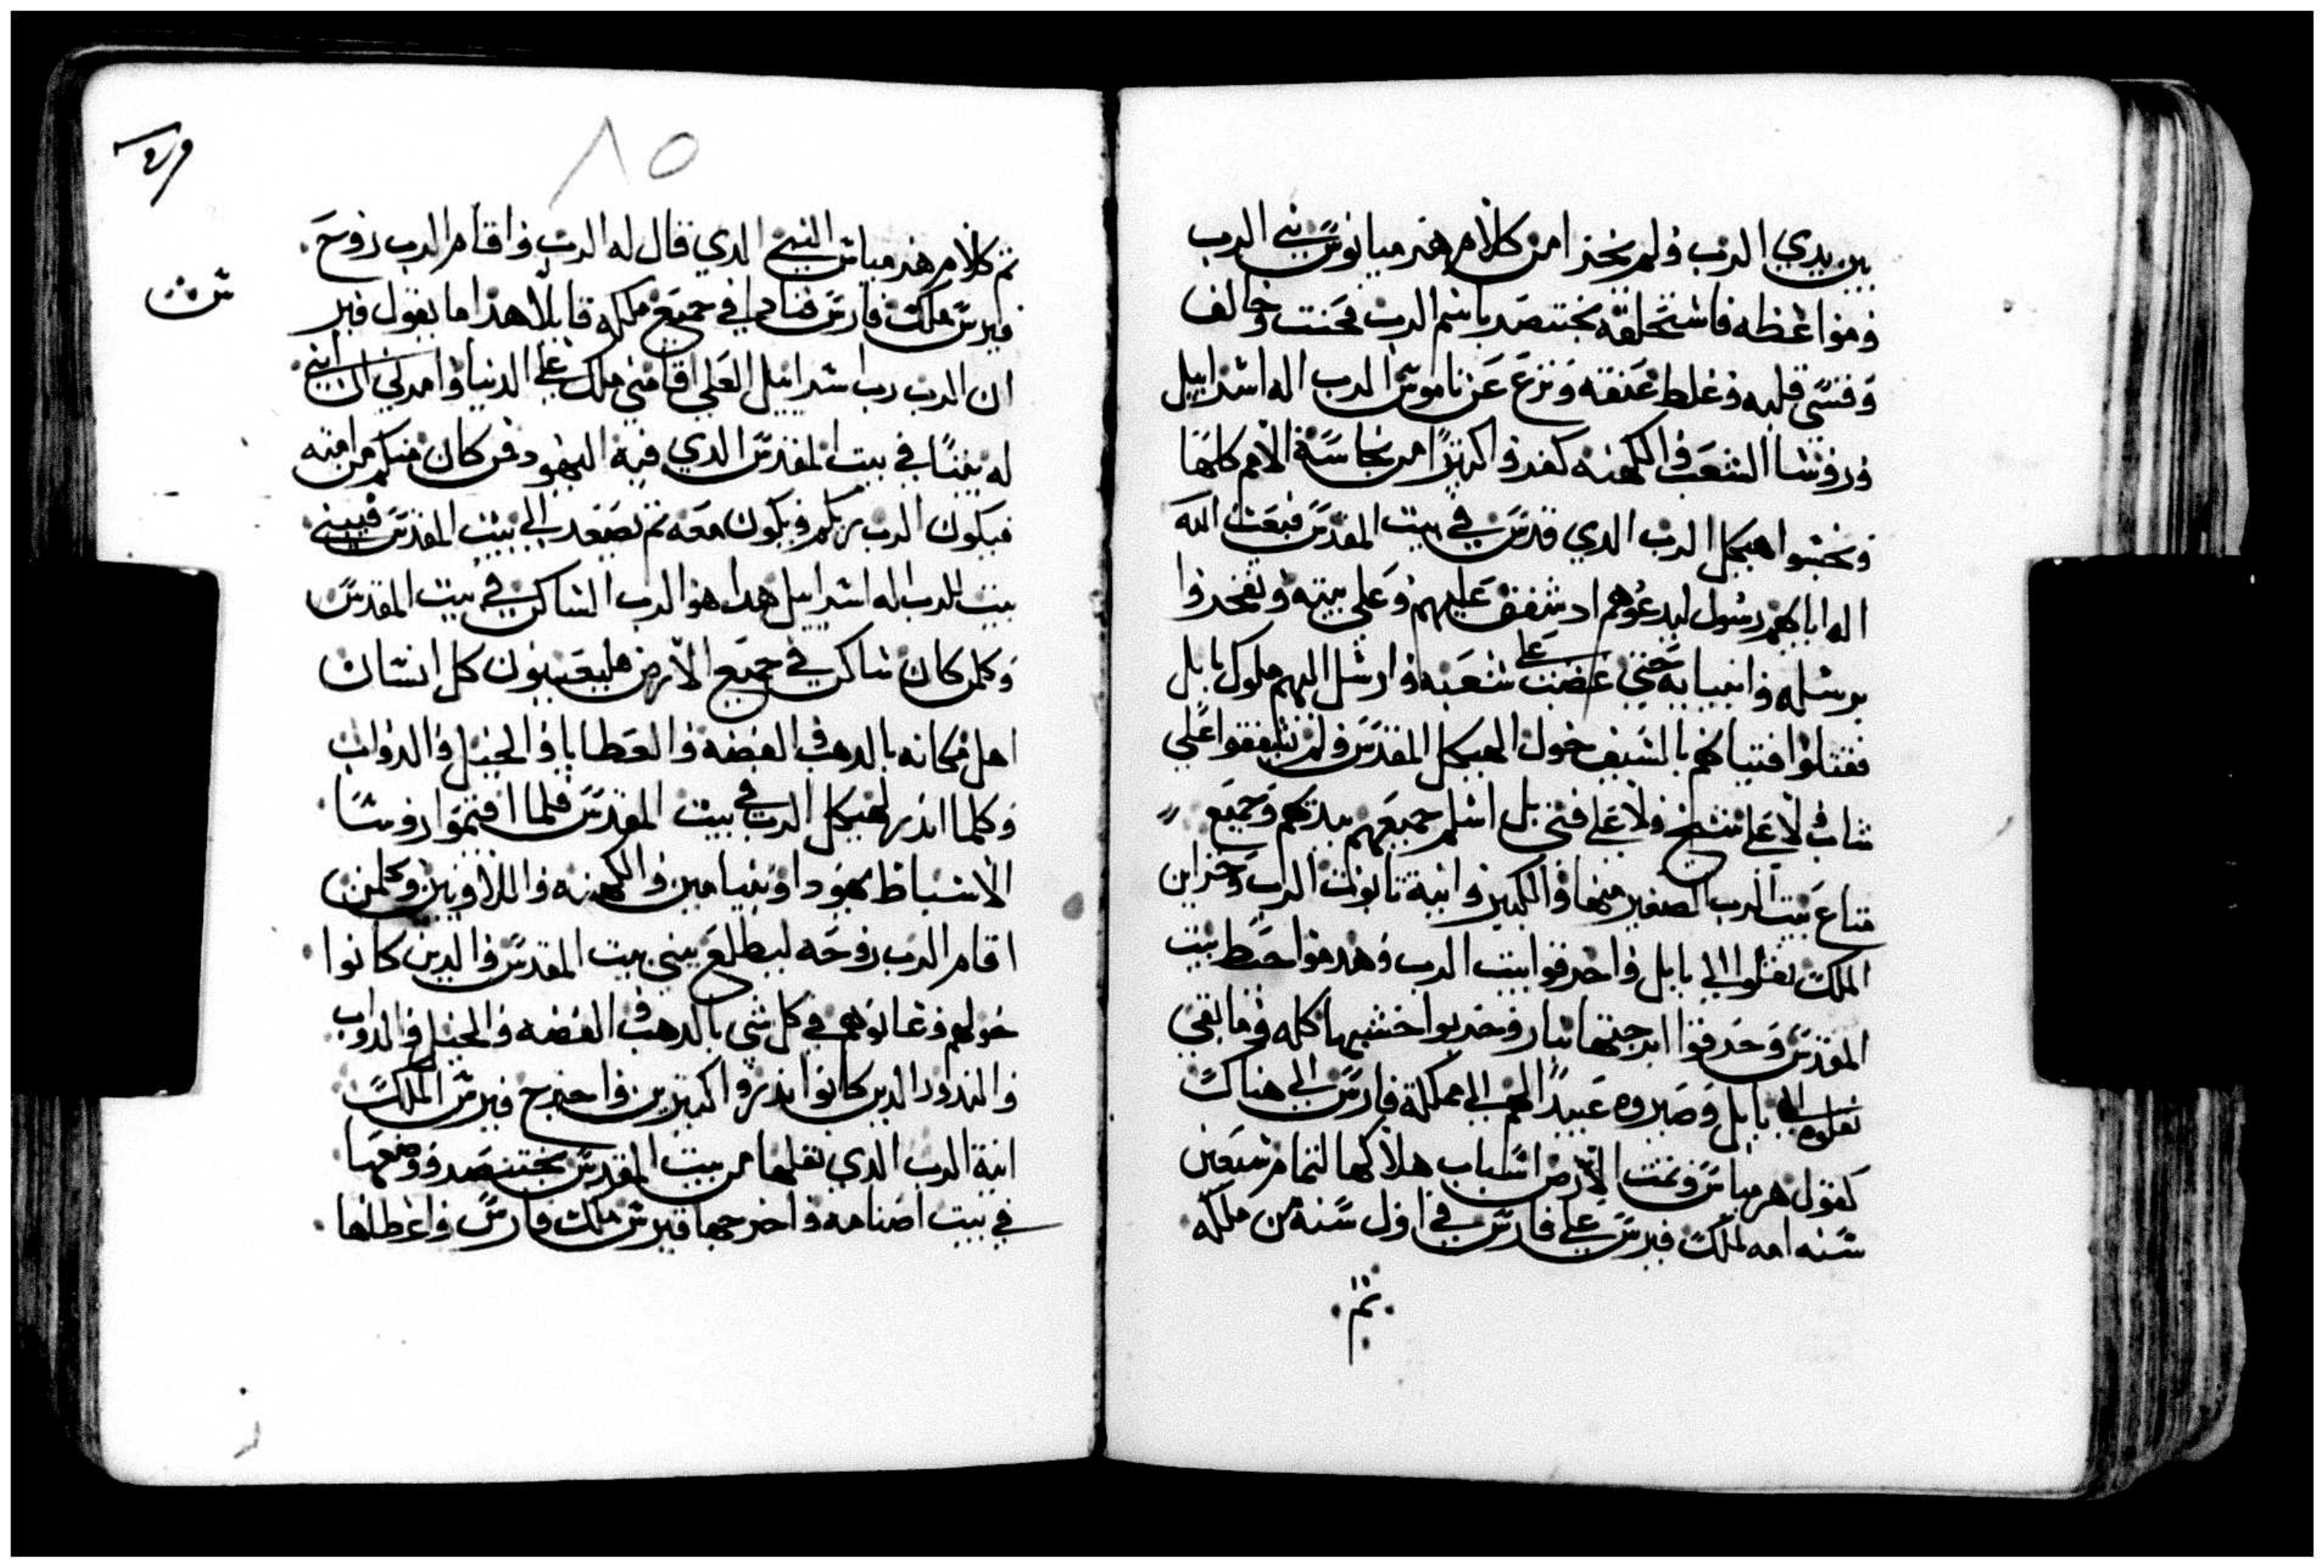 بين يدي الرب ولم يخزا من كلام هرميانوس نبي الرب
ومواعظه فاستحلفه بختنصر باسم الرب فحنت وخالف
وقسى قلبه وغلط عنقه ونزع عن ناموس الرب اله اسرايل
وروسا الشعب والكهنه كفرو اكتر من نجاسة الامم كلها
ونجسوا هيكل الرب الدي قدس في بيت المقدس فبعت الله
اله اباكهم رسول ليدعوهم اد شفق عليهم وعلى بيته
برسله وانبيايه حتي غضب على شعبه وارسل اليهم ملوك بابل
فقتلوا فتيانهم بالسيف حول الهيكل المقدس ولم يشفقوا على
شاب لا على شيخ ولا على فتى بل اسلم جميعهم بيدكم وجميع
متاع بيت الرب الصغير منها والكبير وانية تابوت الرب وخزاين
الملك نقلوا الي بابل واحرقوا بيت الرب وهدموا حيط بيت
المقدس وحرقوا ابرجتها بنار وخربوا خشبها كله وما بقي
نقلوه الى بابل وصيروه عبيدا لهم الى مملكة فارس الى هناك
كقول هرمياس وتمت الارض اسباب هلاكها لتمام سبعين
سنه امه لملك قبرس على فارس في اول سنة من ملكه
تم
٨٥
تم كلام هرمياس النبي الدي قال له الرب واقام الرب روح
قبرس ملك فارس فنادي في جميع ملكه قايلا هذا ما يقول قبر
ان الرب رب اسرايل العلي اقامني ملك على الدنيا وامرني ان ابني
له بيتا في بيت المقدس الدي فيه اليهود فمن كان منكم من امته
فيكون الرب بربكم ويكون معه تم يصعد الى بيت المقدس فيبني
بيت للرب اله اسرايل هدا هو الرب الساكن في بيت المقدس
وكلمن كان ساكن في جميع الارض فليعينون كل انسان
اهل مكانه بالدهب والفضه والعطايا والخيل والدواب
وكلما اندر لهيكل الرب في بيت المقدس فلما اقتموا روسا
الاسباط يهودا وبنيامين والكهنه واللاويين وكلمن
اقام الرب روحه ليطلع يبني بيت المقدس والدين كانوا
حولهم وعانوهم في كل شي بالدهب والفضه والخيل والدواب
والندور الدين كانوا اندرو اكتيرين واخرج قبرس الملك
انية الرب الدي نقلها من بيت المقدس بختنصر ووضعها
في بيت اصنامه واخرجها قبرس ملك فارس واعطاها